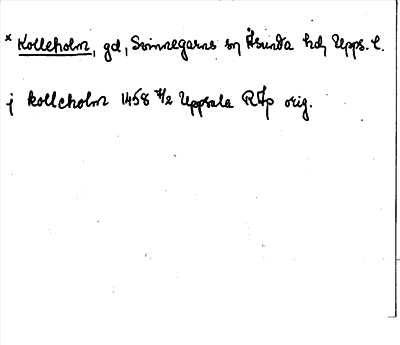 * Kolleholm, gd, Svinnegarns sn Åsunda hd, Upps. l.
j kolleholm 1458 7/2 Uppsala RAp orig.